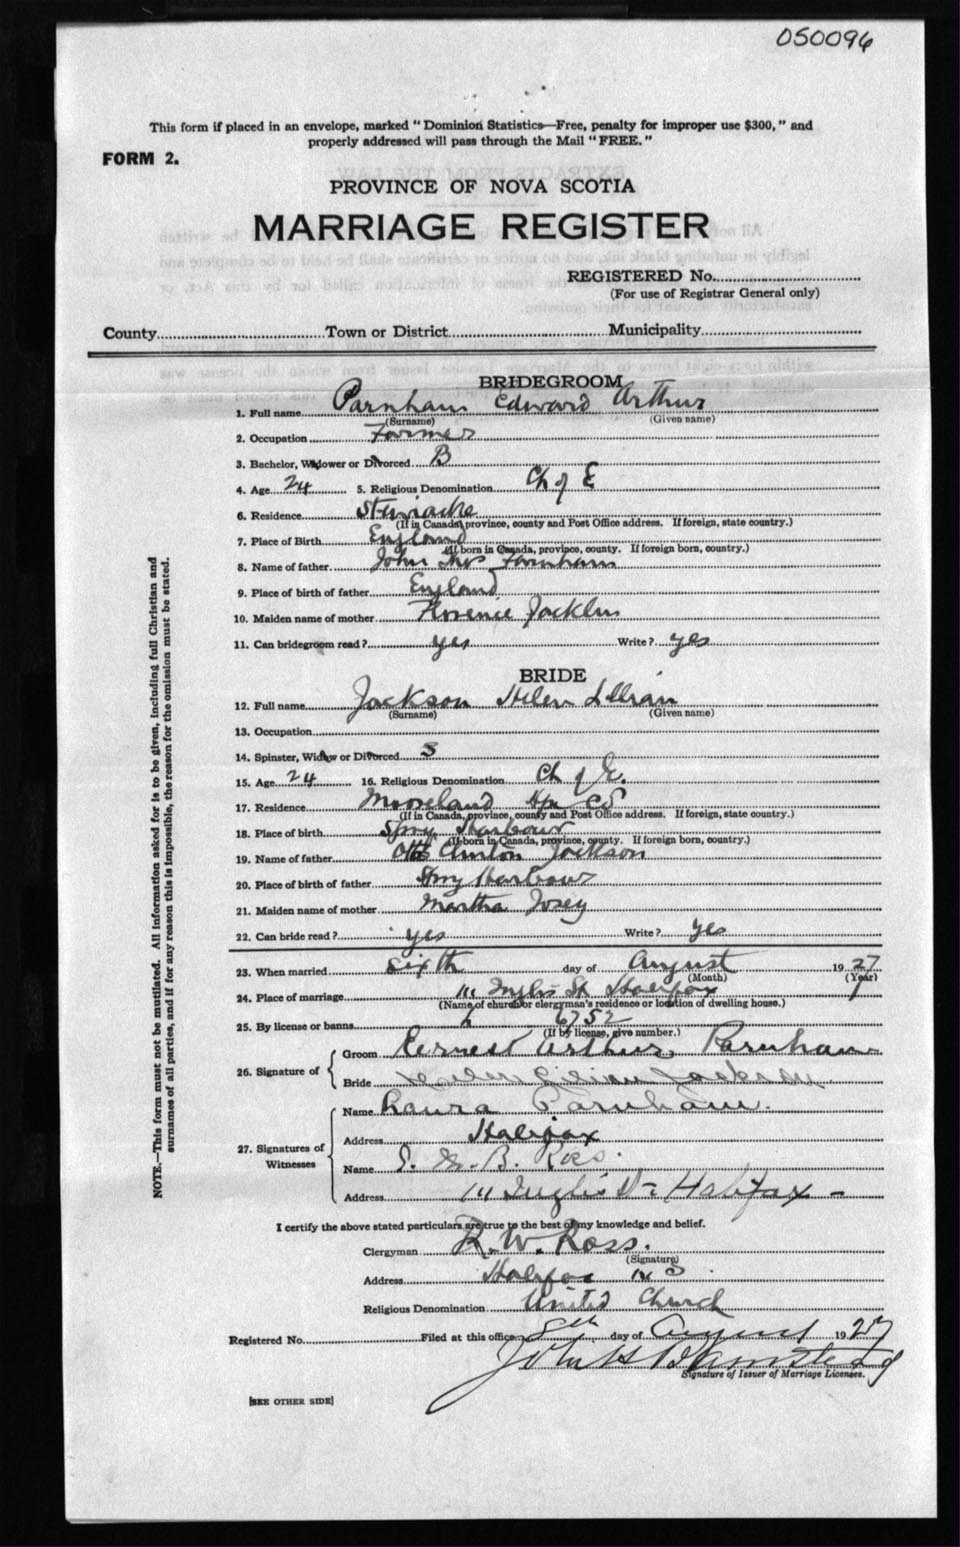 050096
This form if placed in an envelope, marked "Dominion Statistics—Free, penalty for improper use $300," and
properly addressed will pass through the Mail "FREE."
FORM 2.
PROVINCE OF NOVA SCOTIA
MARRIAGE REGISTER
REGISTERED No.
(For use of Registrar General only)
County Town or District Municipality
BRIDEGROOM
1. Full name Parnham Edward Arthur
(Surname) (Given name)
2. Occupation Farmer
3. Bachelor, Widower or Divorced B
4. Age 24 5. Religious Denomination Ch of E
6. Residence Stewiacke
(If in Canada, province, county and Post Office address. If foreign, state country.)
7. Place of Birth England
(If born in Canada, province, county. If foreign born, country.)
8. Name of father John Thos Farnham
9. Place of birth of father England
10. Maiden name of mother Florence Jacklin
11. Can bridegroom read? yes Write? yes
BRIDE
12. Full name Jackson Helen Lillian
(Surname) (Given name)
13. Occupation
14. Spinster, Widow or Divorced S
15. Age 24 16. Religious Denomination Ch of E.
17. Residence Mooreland Hfx Co
(If in Canada, province, county and Post Office address. If foreign, state country.)
18. Place of birth Spry Harbour
(If born in Canada, province, county. If foreign born, country.)
19. Name of father Otto Clinton Jackson
20. Place of birth of father Spry Harbour
21. Maiden name of mother Martha Josey
22. Can bride read? yes Write? yes
23. When married sixth day of August 1927
(Month) (Year)
24. Place of marriage 111 Inglis St Halifax
(Name of church or clergyman's residence or location of dwelling house.)
25. By license or banns L 6752
(If by license, give number.)
26. Signature of
Groom Ernest Arthur Parnham
Bride Helen Lilian Jackson
27. Signatures of Witnesses
Name Laura Parnham.
Address Halifax
Name S. B. Ross.
Address 111 Inglis St - Halifax -
I certify the above stated particulars are true to the best of my knowledge and belief.
Clergyman R. W. Ross.
(Signature)
Address Halifax N S
Religious Denomination United Church
Registered No. Filed at this office 8th day of August 1927
John H Barnstead
Signature of Issuer of Marriage Licenses.
[SEE OTHER SIDE]
NOTE.—This form must not be mutilated. All information asked for is to be given, including full Christian and
surnames of all parties, and if for any reason this is impossible, the reason for the omission must be stated.